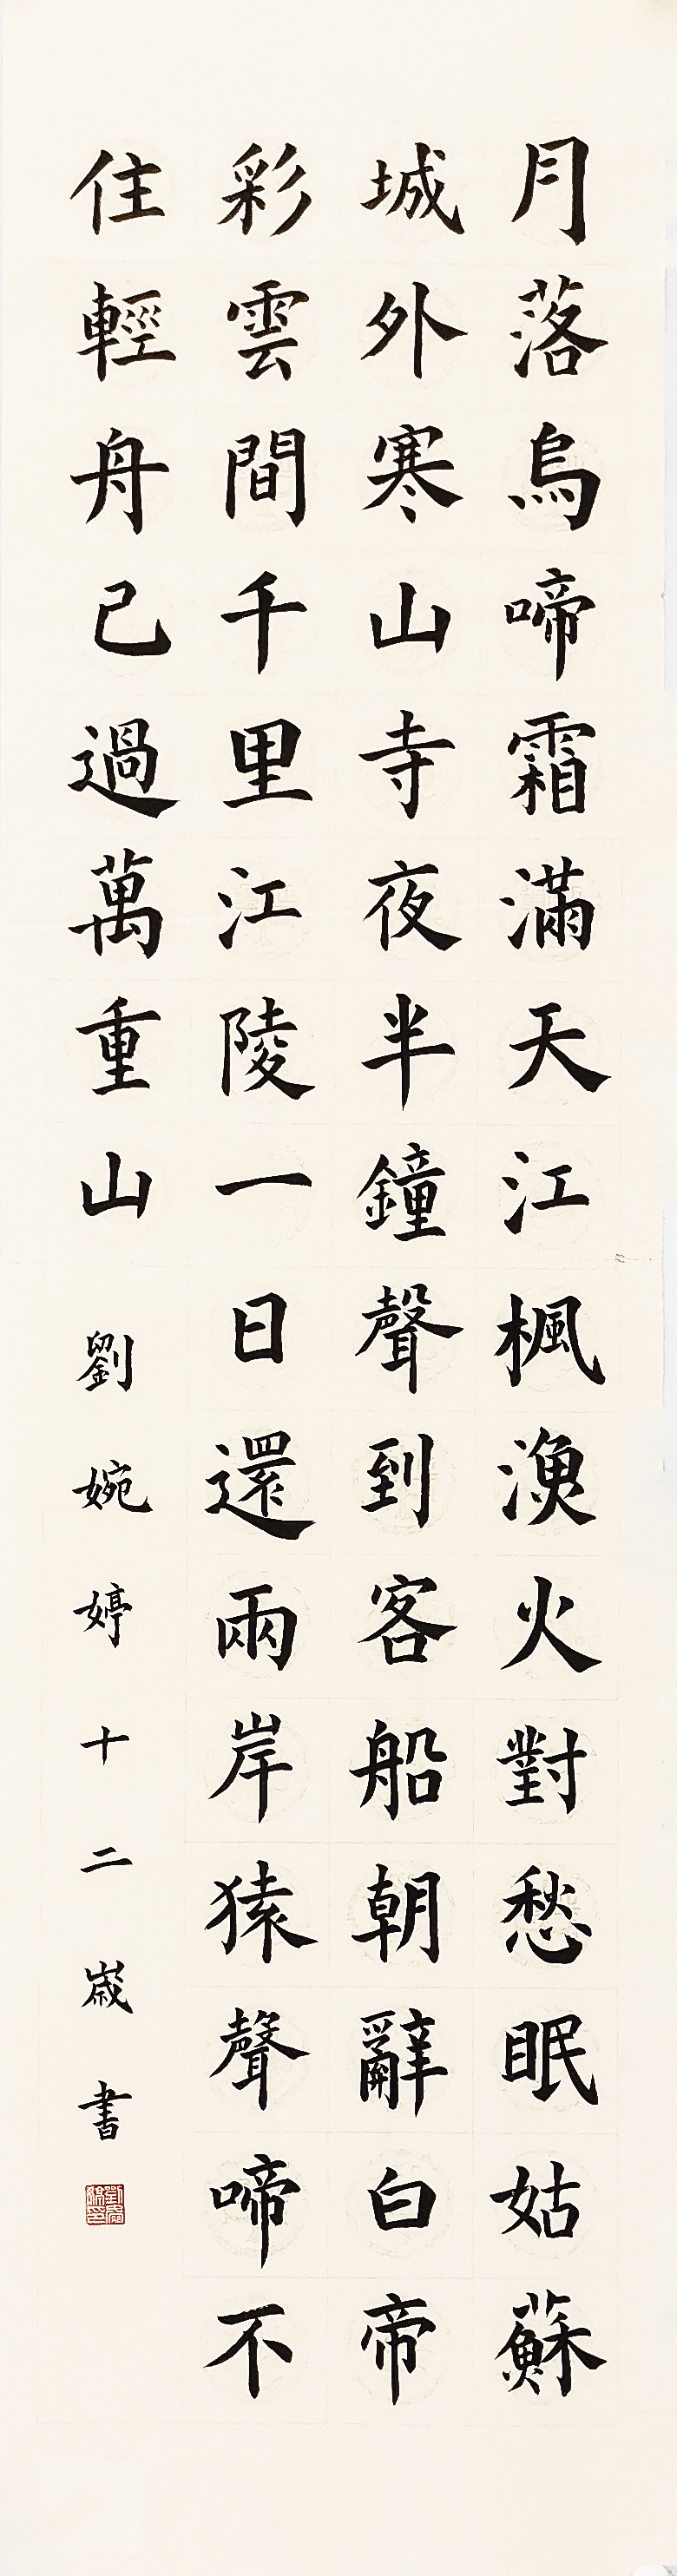 月落烏啼霜滿天江楓漁火對愁眠姑蘇
城外寒山寺夜半鐘聲到客船朝辭白帝
彩雲間千里江陵一日還兩岸猿聲啼不
住輕舟已過萬重山
劉婉婷十二歲書